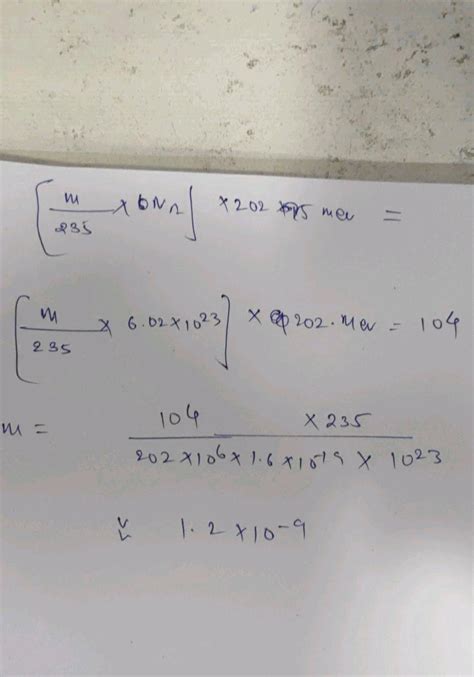 [m/235 × 6NA] × 202 mev =
[m/235 × 6.02×10²³] × 202. Mev = 104
m = 104 × 235 / 202 ×10⁶ × 1.6 ×10⁻¹⁹ × 10²³
1.2 ×10⁻⁹